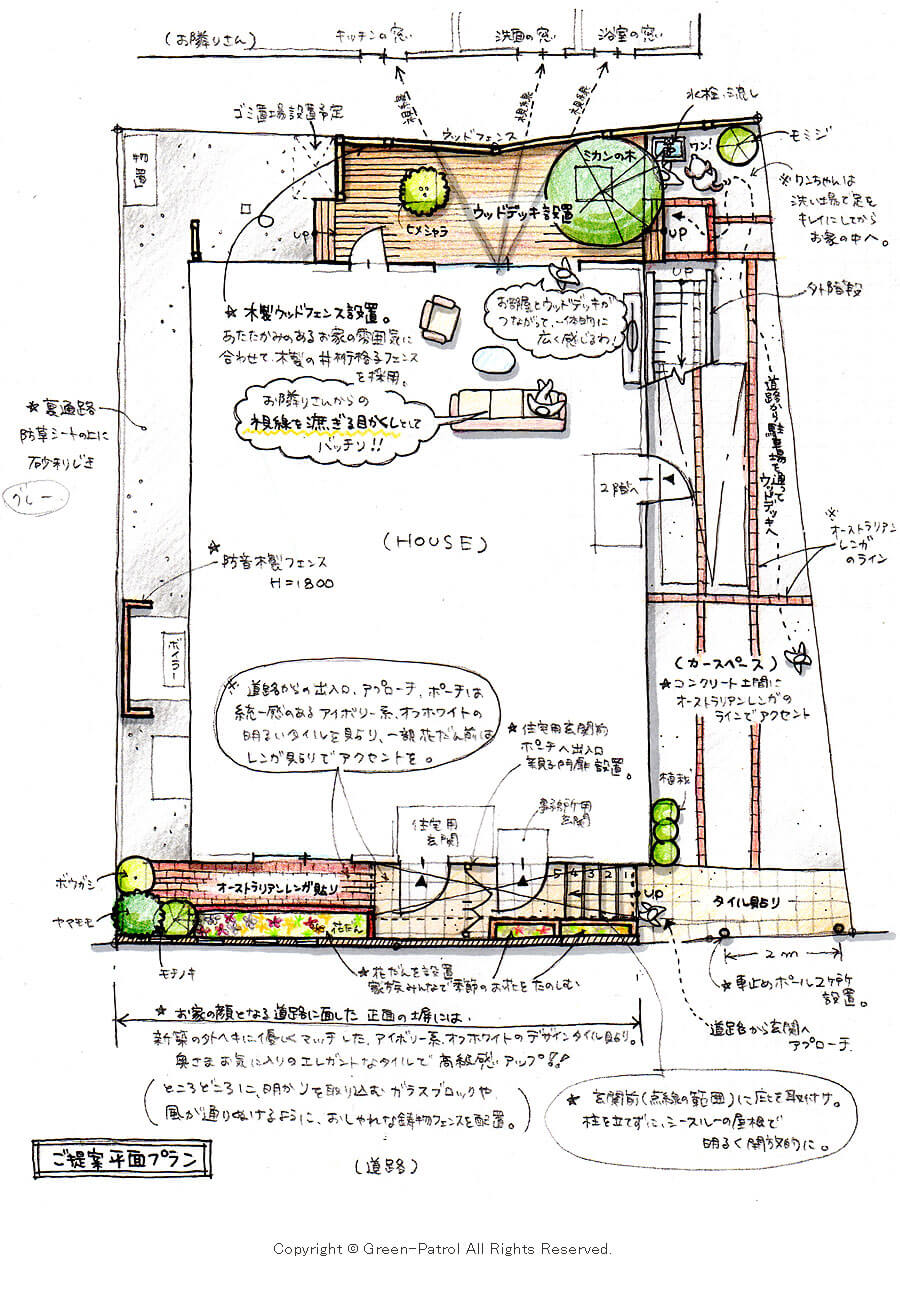 (お隣りさん)
キッチンの窓
洗面の窓
浴室の窓
視線
視線
視線
ゴミ置場設置予定
ウッドフェンス
水栓、流し
モミジ
物置
ミカンの木
ワン!
※ワンちゃんは
洗い場で足を
キレイにしてから
お家の中へ。
ウッドデッキ設置
ヒメシャラ
UP
UP
UP
外階段
★木製ウッドフェンス設置。
あたたかみのあるお家の雰囲気に
合わせて、木製の井桁格子フェンス
を採用。
お部屋とウッドデッキが
つながって、一体的に
広く感じるわ!
お隣りさんからの
視線を遮ぎる目かくしとして
バッチリ!!
★裏通路
防草シートの上に
砂利じき
グレー
道路から駐車場を通って
ウッドデッキへ
2階へ
(HOUSE)
※オーストラリアン
レンガ
のライン
★防音木製フェンス
H=1800
ボイラー
(カースペース)
★コンクリート土間に
オーストラリアンレンガの
ラインでアクセント
※道路からの出入口、アプローチ、ポーチは
統一感のあるアイボリー系、オフホワイトの
明るいタイルを貼り、一部花だん前は
レンガ貼りでアクセントを。
★住宅用玄関前
ポーチへ出入口
親子門扉設置。
植栽
住宅用
玄関
事務所用
玄関
ボウガシ
オーストラリアンレンガ貼り
5 4 3 2 1
UP
タイル貼り
ヤマモモ
花だん
モチノキ
★花だんを設置
家族みんなで季節のお花をたのしむ
2m
★車止めポール2ヶ所
設置。
道路から玄関へ
アプローチ.
★お家の顔となる道路に面した正面の塀には、
新築の外ヘキに優しくマッチした、アイボリー系、オフホワイトのデザインタイル貼り。
奥さまお気に入りのエレガントなタイルで高級感アップ!!
(ところどころに、明かりを取り込むガラスブロックや、
風が通りぬけるように、おしゃれな鋳物フェンスを配置。)
★玄関前(点線の範囲)に庇を取付け。
柱を立てずに、シースルーの屋根で
明るく開放的に。
ご提案平面プラン
(道路)
Copyright © Green-Patrol All Rights Reserved.